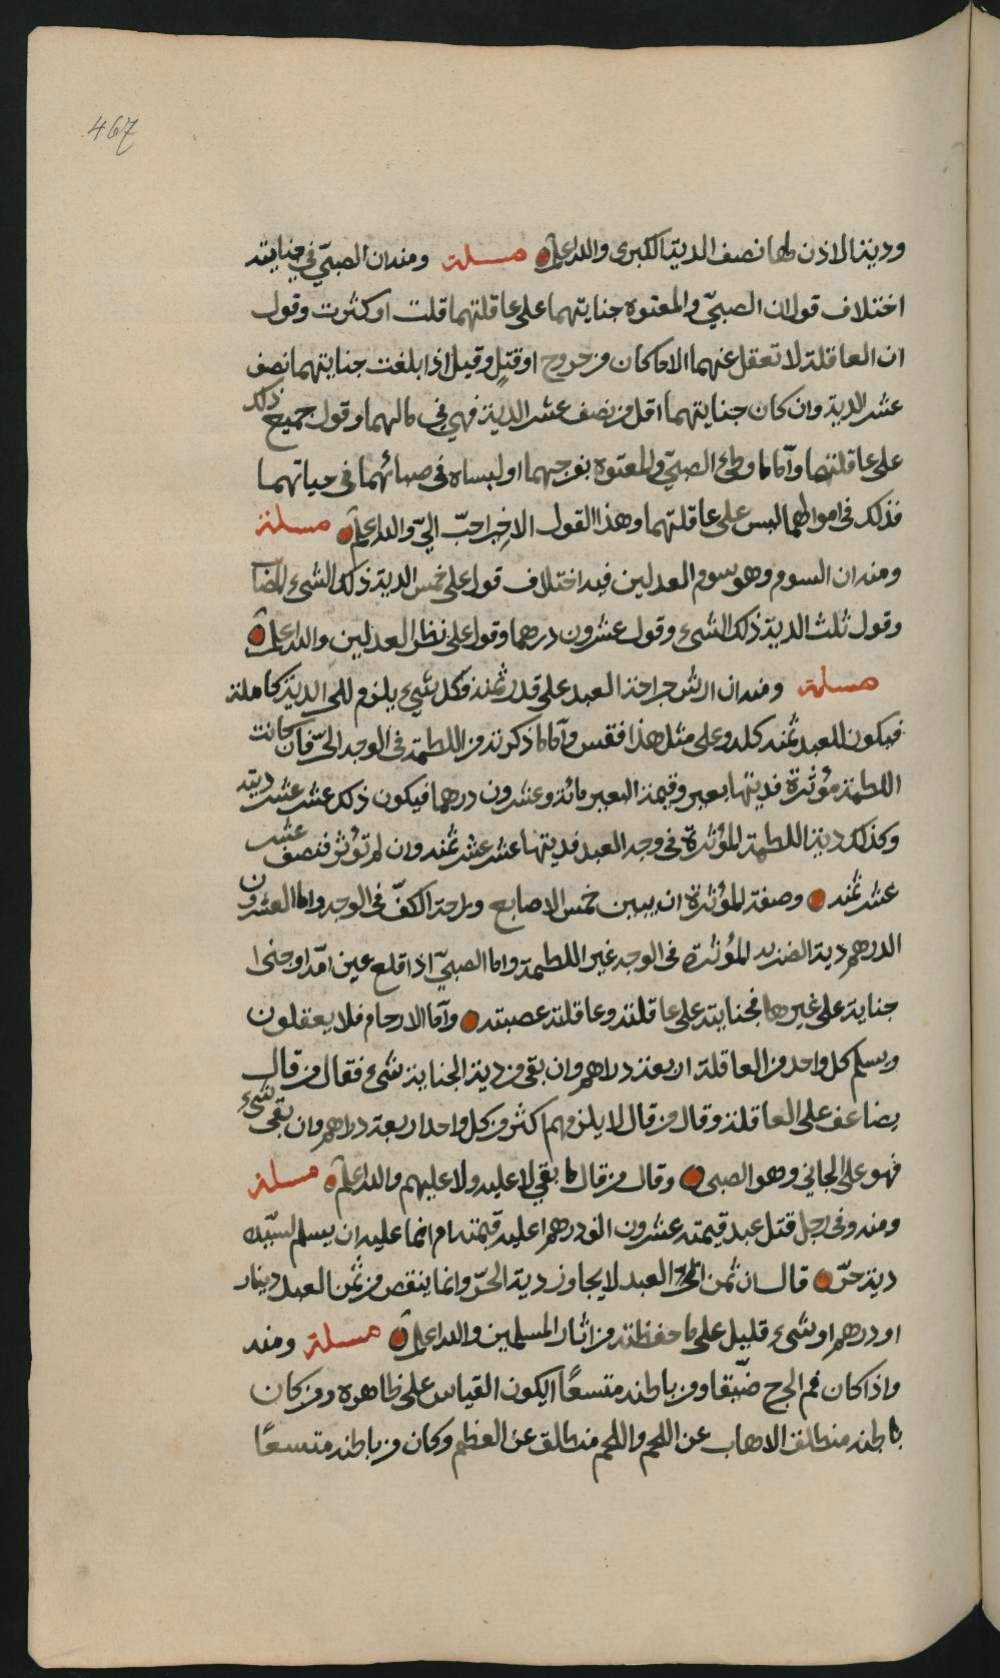 467
ودية الاذن لها نصف الدية الكبرى والله اعلم مسلة ومنه ان الصبيّ في جنايته
اختلاف قول ان الصبيّ والمعتوه جنايتهما على عاقلتهما قلت او كثرت وقول
ان العاقلة لا تعقل عنهما الا ما كان من جروح او قتل وقيل اذا بلغت جنايتهما نصف
عشر الدية وان كان جنايتهما اقل من نصف عشر الدية فهي في مالهما وقول جميع ذلك
على عاقلتهما وأما ما وطئ الصبيّ والمعتوه بفرجهما او لبساه في صبائهما في حياتهما
فذلك في اموالهما ليس على عاقلتهما وهذا القول الاخير احبّ اليّ والله اعلم مسلة
ومنه ان السوم وهو سوم العدلين فيه اختلاف قول على خمس الدية ذلك الشيء
وقول ثلث الدية ذلك الشيء وقول عشرون درهما وقول على نظر العدلين والله اعلم
مسلة ومنه ان ارش جراحة العبد على قدر ثمنه فكل شيء يلزم للحر الدية كاملة
فيكون للعبد ثمنه كله وعلى مثل هذا فقس وأما ما ذكرته من اللطمة في الوجه الحرّ فان كانت
اللطمة مؤثرة فديتها بعير وقيمة البعير مائة وعشرون درهما فيكون ذلك عشر عشر ديته
وكذلك دية اللطمة المؤثرة في وجه العبد فديتها عشر عشر ثمنه وان لم تؤثر فنصف عشر
عشر ثمنه وصفة المؤثرة ان يبين خمس الاصابع وراحة الكفّ في الوجه واما العشرون
الدرهم دية الضربة المؤثرة في الوجه غير اللطمة واما الصبيّ اذا قلع عين امّه او جنى
جناية على غيرها فجنايته على عاقلته وعاقلته عصبته وأما الارحام فلا يعقلون
ويسلم كل واحد من العاقلة اربعة دراهم وان بقى من دية الجناية شيء فقال من قال
يضاعف على العاقلة وقال من قال لا يلزمهم اكثر من كل واحد اربعة دراهم وان بقى شيء
فهو على الجاني وهو الصبى وقال من قال ما بقي لا عليه ولا عليهم والله اعلم مسلة
ومنه وفي رجل قتل عبد قيمته عشرون الف درهم اعليه قيمته ام انما عليه ان يسلم لسيّده
دية حرّ قال ان ثمن العبد لا يجاوز دية الحرّ وانما ينقص من ثمن العبد دينار
او درهم او شيء قليل على ما حفظته من اثار المسلمين والله اعلم مسلة ومنه
واذا كان فم الجرح ضيّقا ومن باطنه متسعًا ايكون القياس على ظاهره ومن كان
باطنه منطلق الاهاب عن اللحم واللحم منطلق عن العظم وكان من باطنه متسعًا